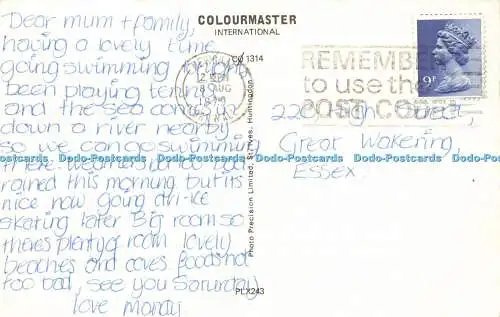 Dear mum + family,
having a lovely time
going swimming
been playing tennis
and the sea comes
down a river nearby
so we can go swimming
there. weathers bad
rained this morning but its
nice now going dri-ke
skating later Big room so
theres plenty of room lovely
beaches and coves foods not
too bad, see you Saturday
love Mandy
COLOURMASTER
INTERNATIONAL
CQ 1314
AUG
REMEMBER
to use the
POST CODE
9P
220, High Street,
Great Wakering,
Essex.
Photo Precision Limited, St. Ives, Huntingdon
PLX243
Dodo-Postcards Dodo-Postcards Dodo-Postcards Dodo-Postcards Dodo-Postcards Dodo-Postcards